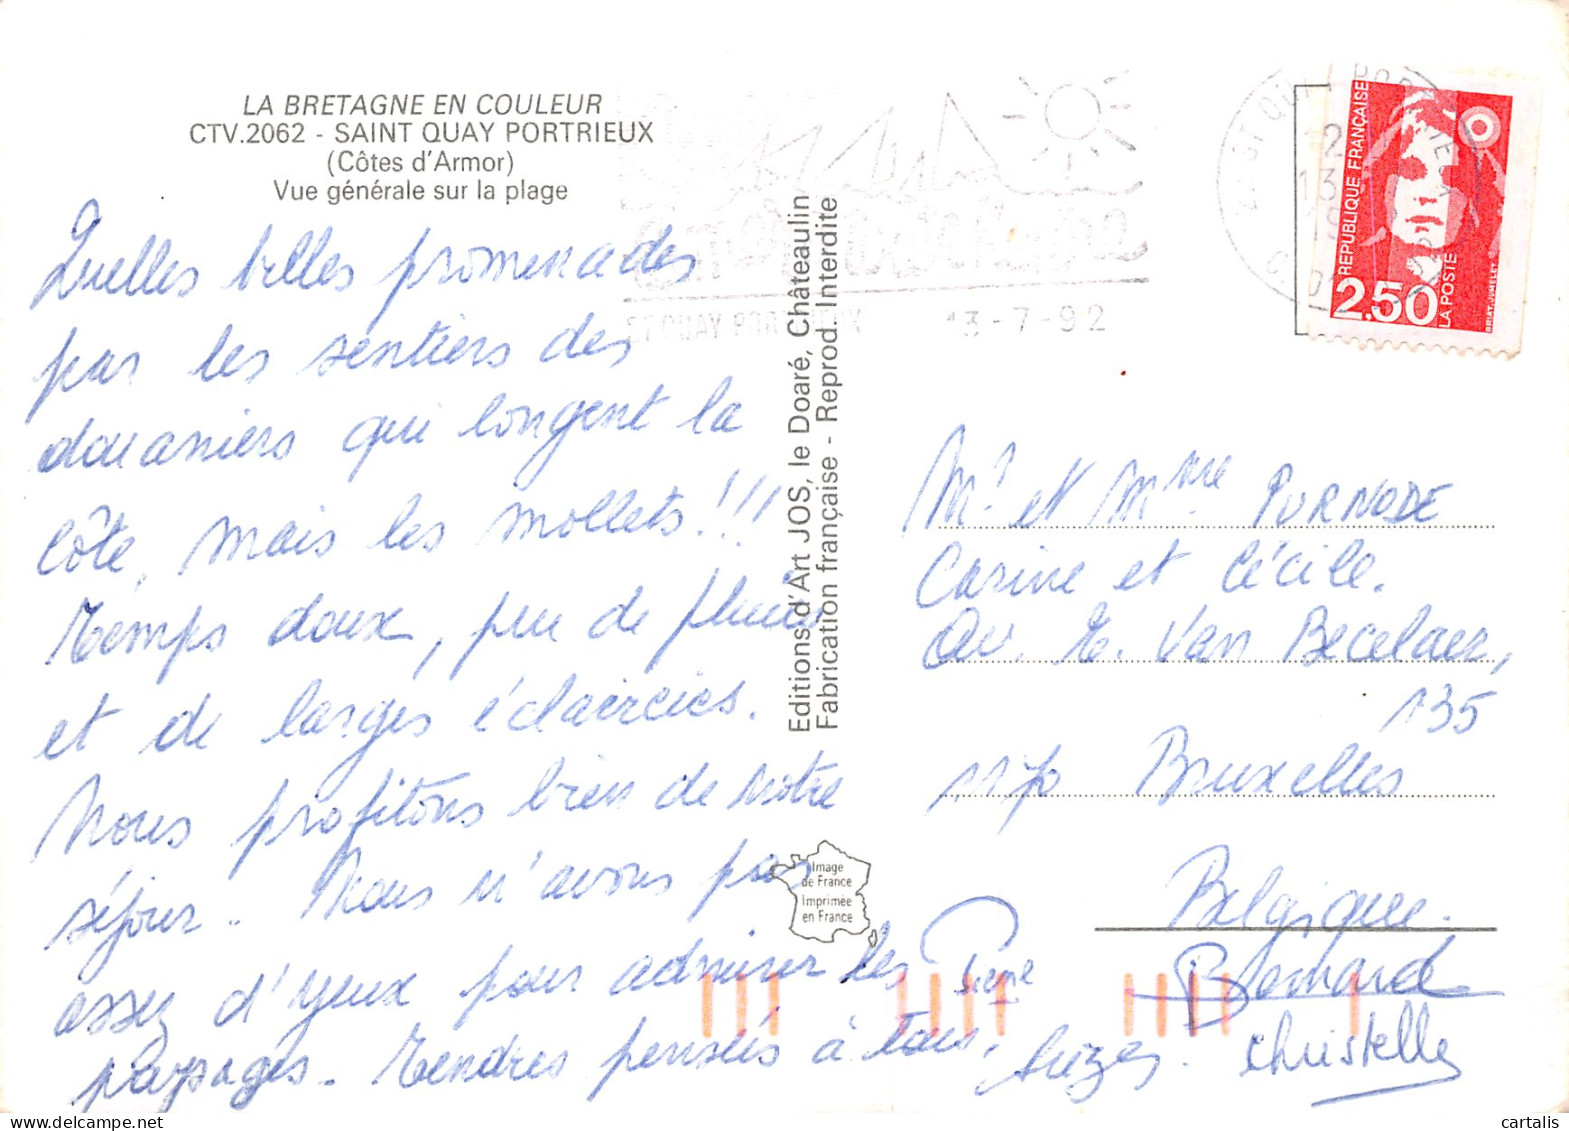 LA BRETAGNE EN COULEUR
CTV.2062 - SAINT QUAY PORTRIEUX
(Côtes d'Armor)
Vue générale sur la plage
Quelles belles promenades
par les sentiers des
douaniers qui longent la
côte, mais les mollets!!!
Temps doux, peu de pluies
et de larges éclaircies.
Nous profitons bien de notre
séjour. Nous n'avons pas
assez d'yeux pour admirer les
paysages. Tendres pensées à tous.
Pierre
Bernard
Christelle
Editions d'Art JOS, le Doaré, Châteaulin
Fabrication française - Reprod. Interdite
Image
de France
Imprimée
en France
ST QUAY PORTRIEUX
13-7-92
REPUBLIQUE FRANÇAISE
2.50
LA POSTE
BRIAT.JUMELET
Mr et Mme PURNODE
Carine et Cécile.
Av. E. Van Becelaer,
135
1170 Bruxelles
Belgique.
cartalis